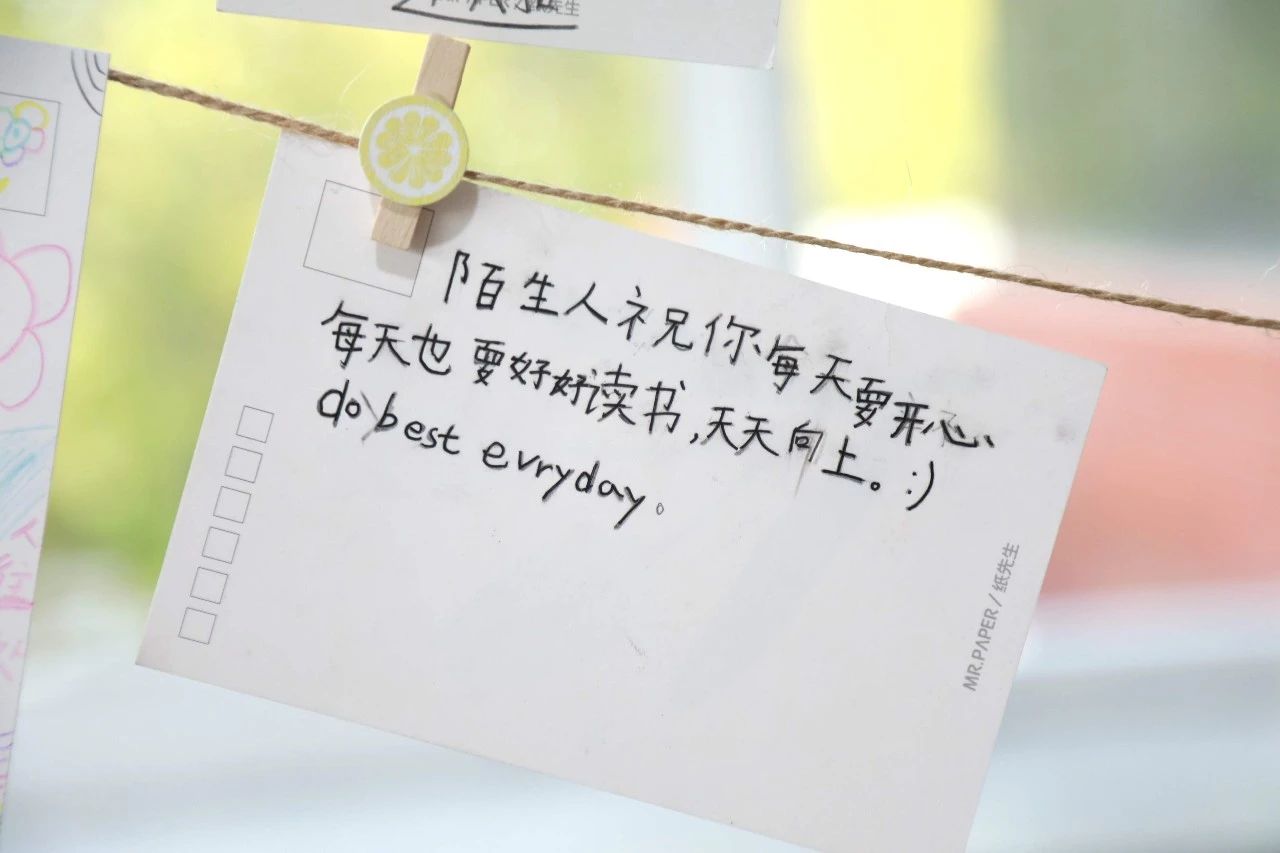 纸先生
陌生人祝你每天要开心、
每天也要好好读书,天天向上。:)
do best evryday。
MR.PAPER / 纸先生